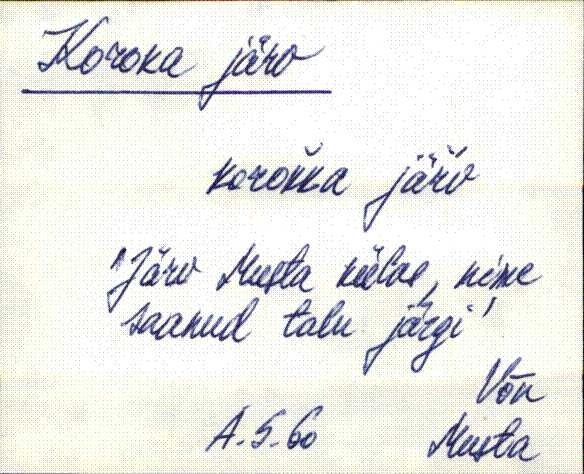 Koroka järv
korokka järv
'Järv Musta külas, nime
saanud talu järgi'
Võn
A.S.60 Musta